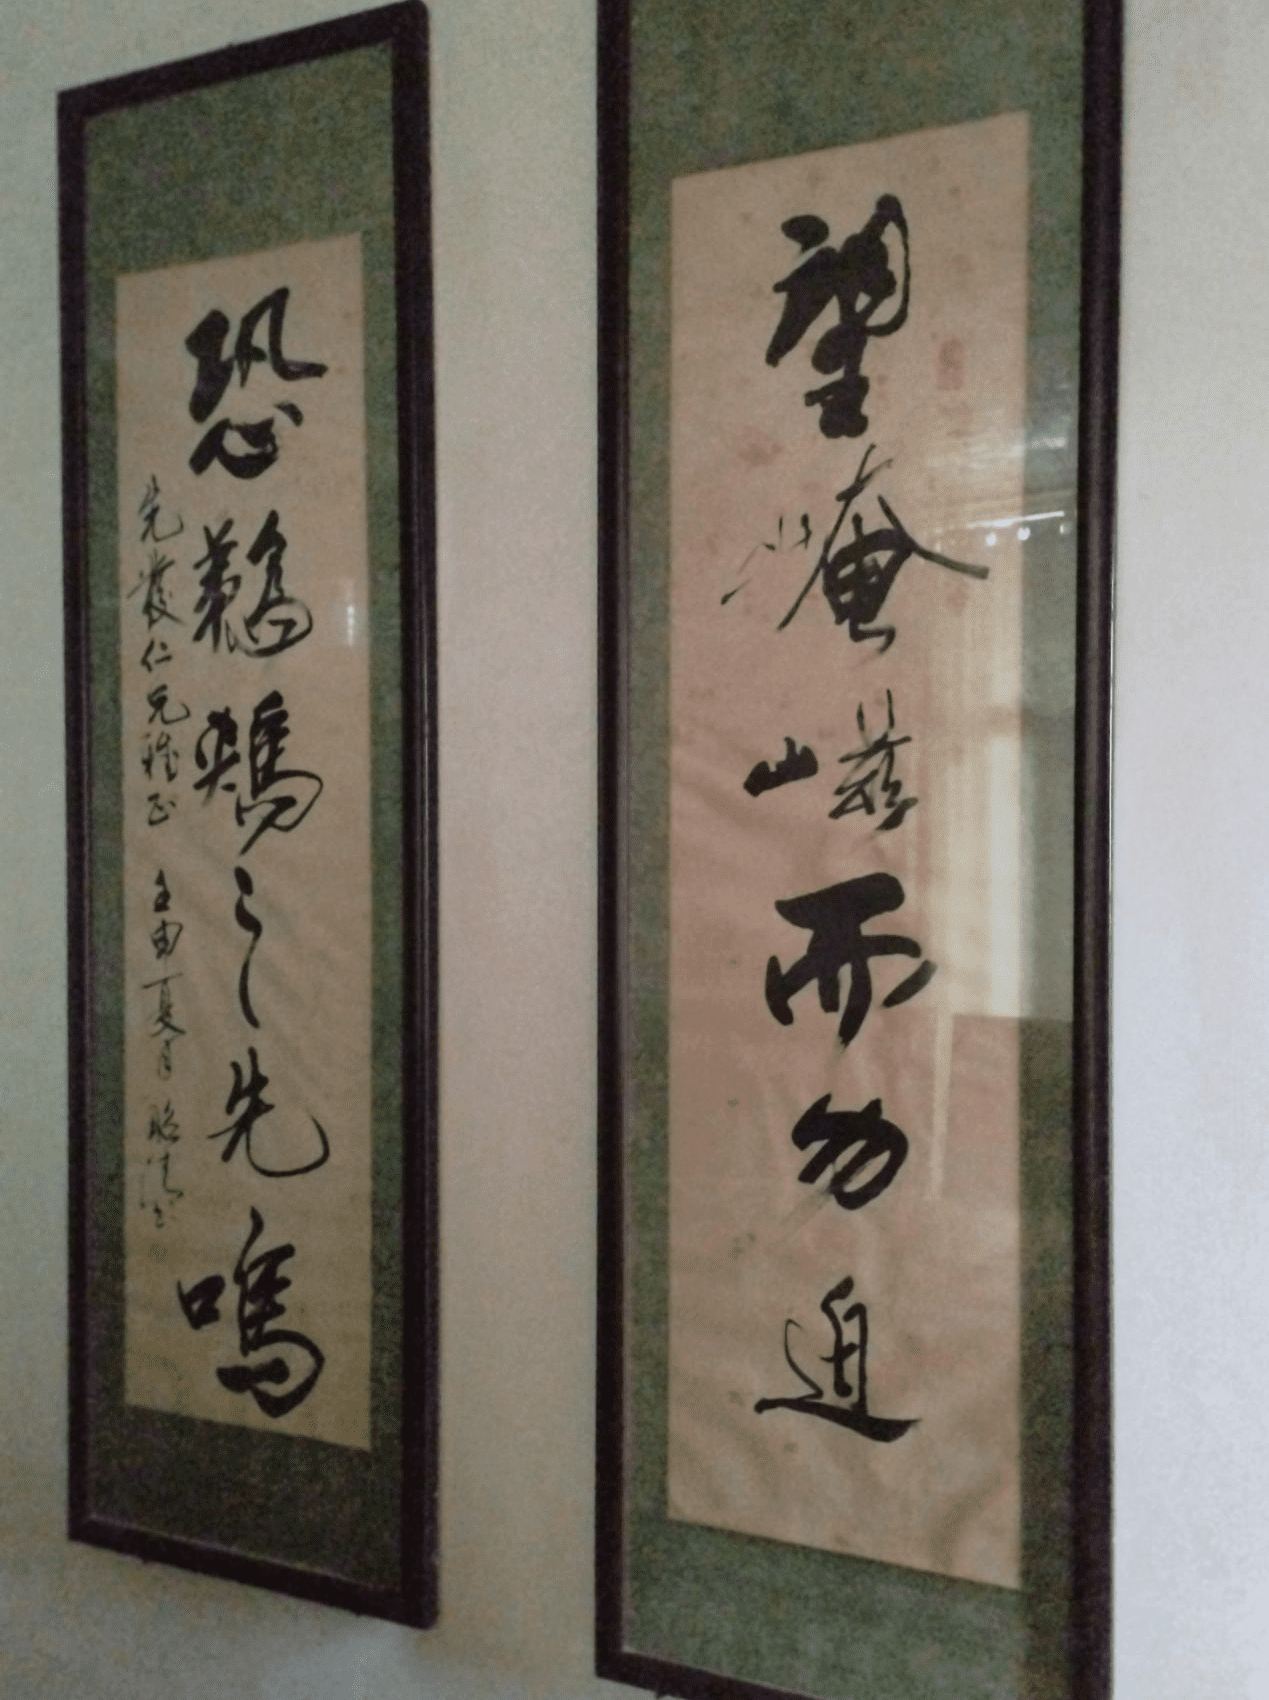 望崦嵫而勿迫
恐鵜鴂之先鳴
先發仁兄雅正 壬申夏月